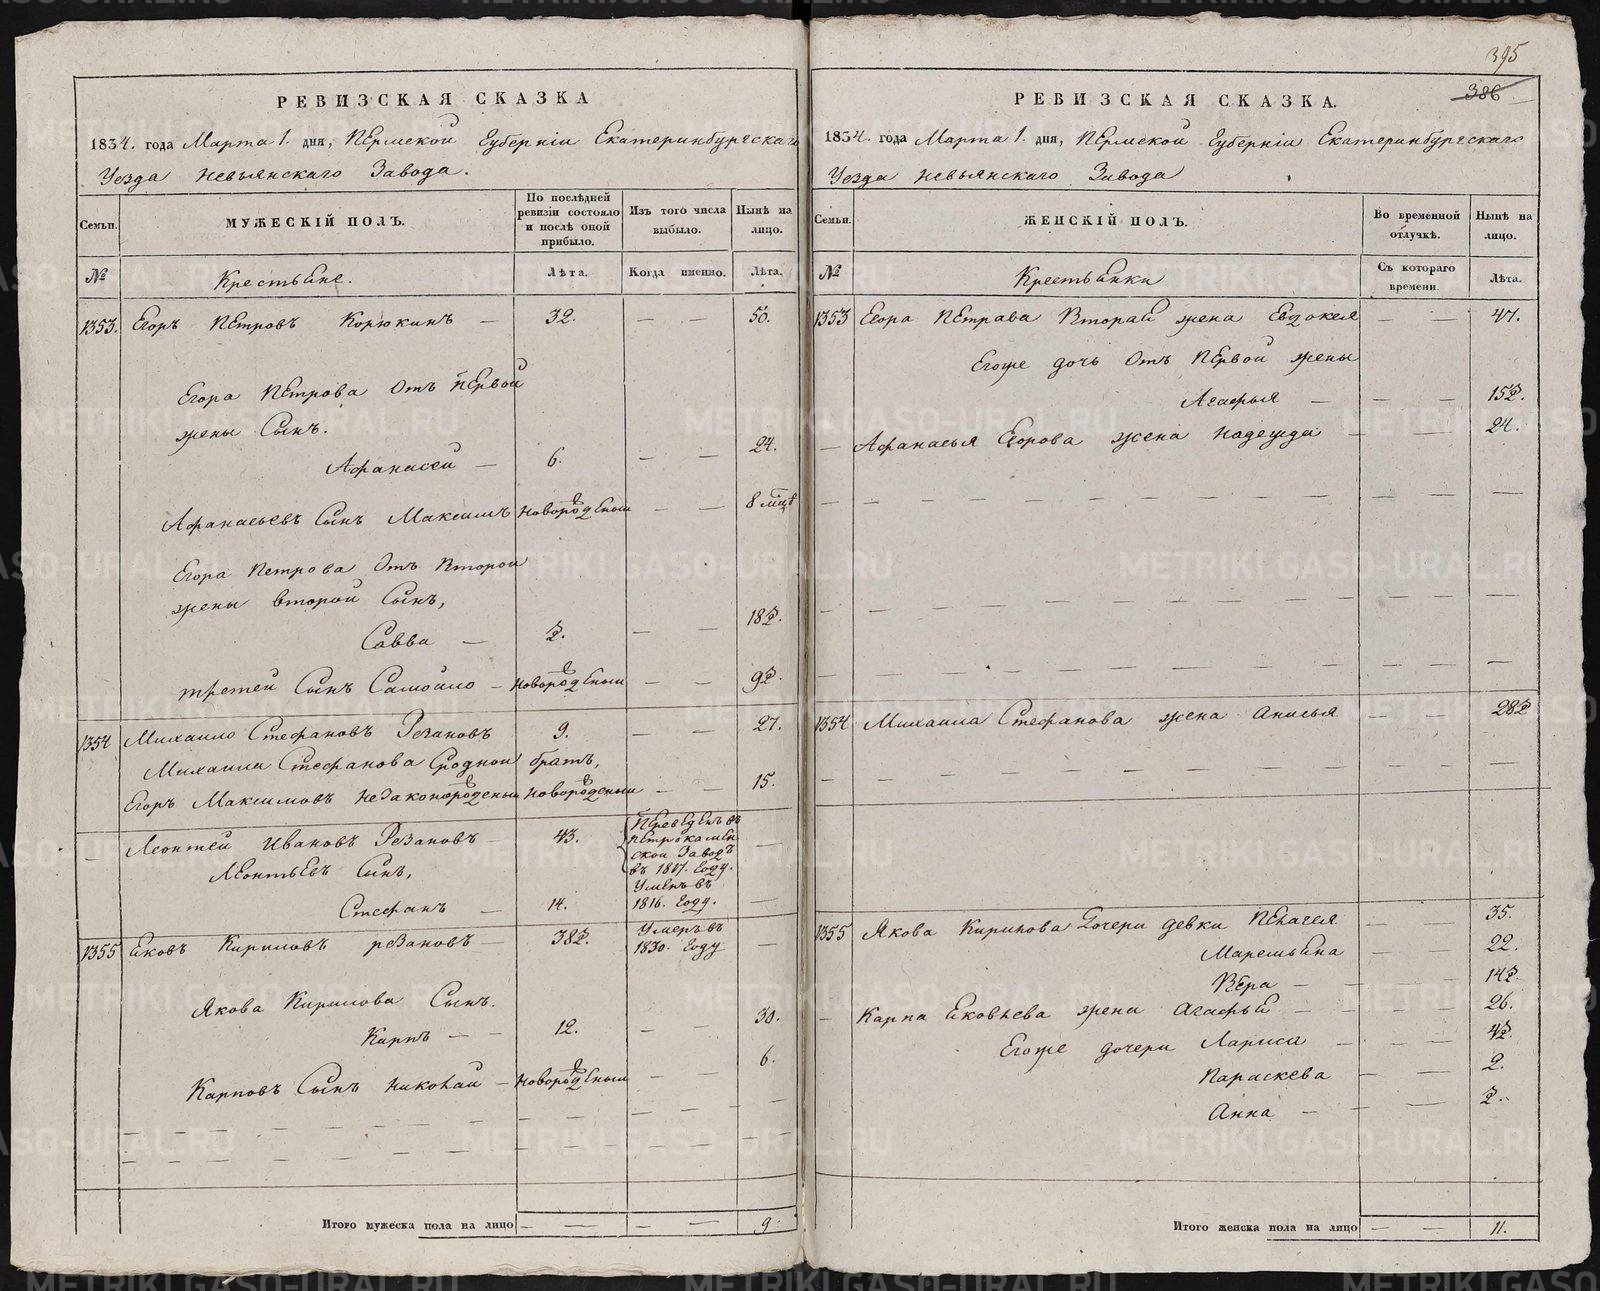 395
386
РЕВИЗСКАЯ СКАЗКА
1834. года Марта 1. дня, Пермской Губерніи Екатеринбургскаго
Уезда Невьянскаго Завода.
Семьи.
МУЖЕСКІЙ ПОЛЪ.
По послѣдней ревизіи состояло и послѣ оной прибыло.
Изъ того числа выбыло.
Нынѣ на лицо.
№
Крестьяне.
Лѣта.
Когда именно.
Лѣта.
1353. Егоръ Петровъ Корюкинъ — 32. — — 50.
Егора Петрова отъ первой
жены Сынъ.
Афанасей — 6. — — 24.
Афанасьевъ Сынъ Максимъ новорожденый — — 8 мцъ
Егора Петрова отъ второй
жены второй Сынъ,
Савва — 2. — — 18½.
третей Сынъ Самойло — новорожденый — — 9½.
1354 Михаило Стефановъ Резановъ 9. — — 27.
Михаила Стефанова Сродной братъ,
Егоръ Максимовъ незаконорожденый новорожденый — — 15.
— Леонтей Ивановъ Резановъ — 43. Переведенъ въ
Петрокамен
ской Заводъ
въ 1817. году. —
Леонтьевъ Сынъ,
Стефанъ — 14. Умеръ въ
1816. году. —
1355 Яковъ Кириловъ Резановъ — 38½. Умеръ въ
1830. году —
Якова Кирилова Сынъ.
Карпъ — — 12. — — 30.
Карповъ Сынъ Николай — новорожденый — — 6.
Итого мужеска пола на лицо — — — — 9.
РЕВИЗСКАЯ СКАЗКА.
1834. года Марта 1. дня, Пермской Губерніи Екатеринбургскаго
Уезда Невьянскаго Завода
Семьи.
ЖЕНСКІЙ ПОЛЪ.
Во временной отлучкѣ.
Нынѣ на лицо.
№
Крестьянки
Съ котораго времени.
Лѣта.
1353 Егора Петрова вторая жена Евдокея — — 47.
Егоже дочь отъ первой жены
Агафья — — — 15½.
— Афанасья Егорова жена Надежда — — 24.
1354 Михаила Стефанова жена Анисья — — 28½
1355 Якова Кирилова дочери девки Пелагея — — 35.
Маремьяна — — 22.
Вера — — — 14½
— Карпа Яковлева жена Агафья — — — 26.
Егоже дочери Лариса — — — 4½.
Параскева — — 2.
Анна — — — ½.
Итого женска пола на лицо — — 11.
METRIKI.GASO-URAL.RU